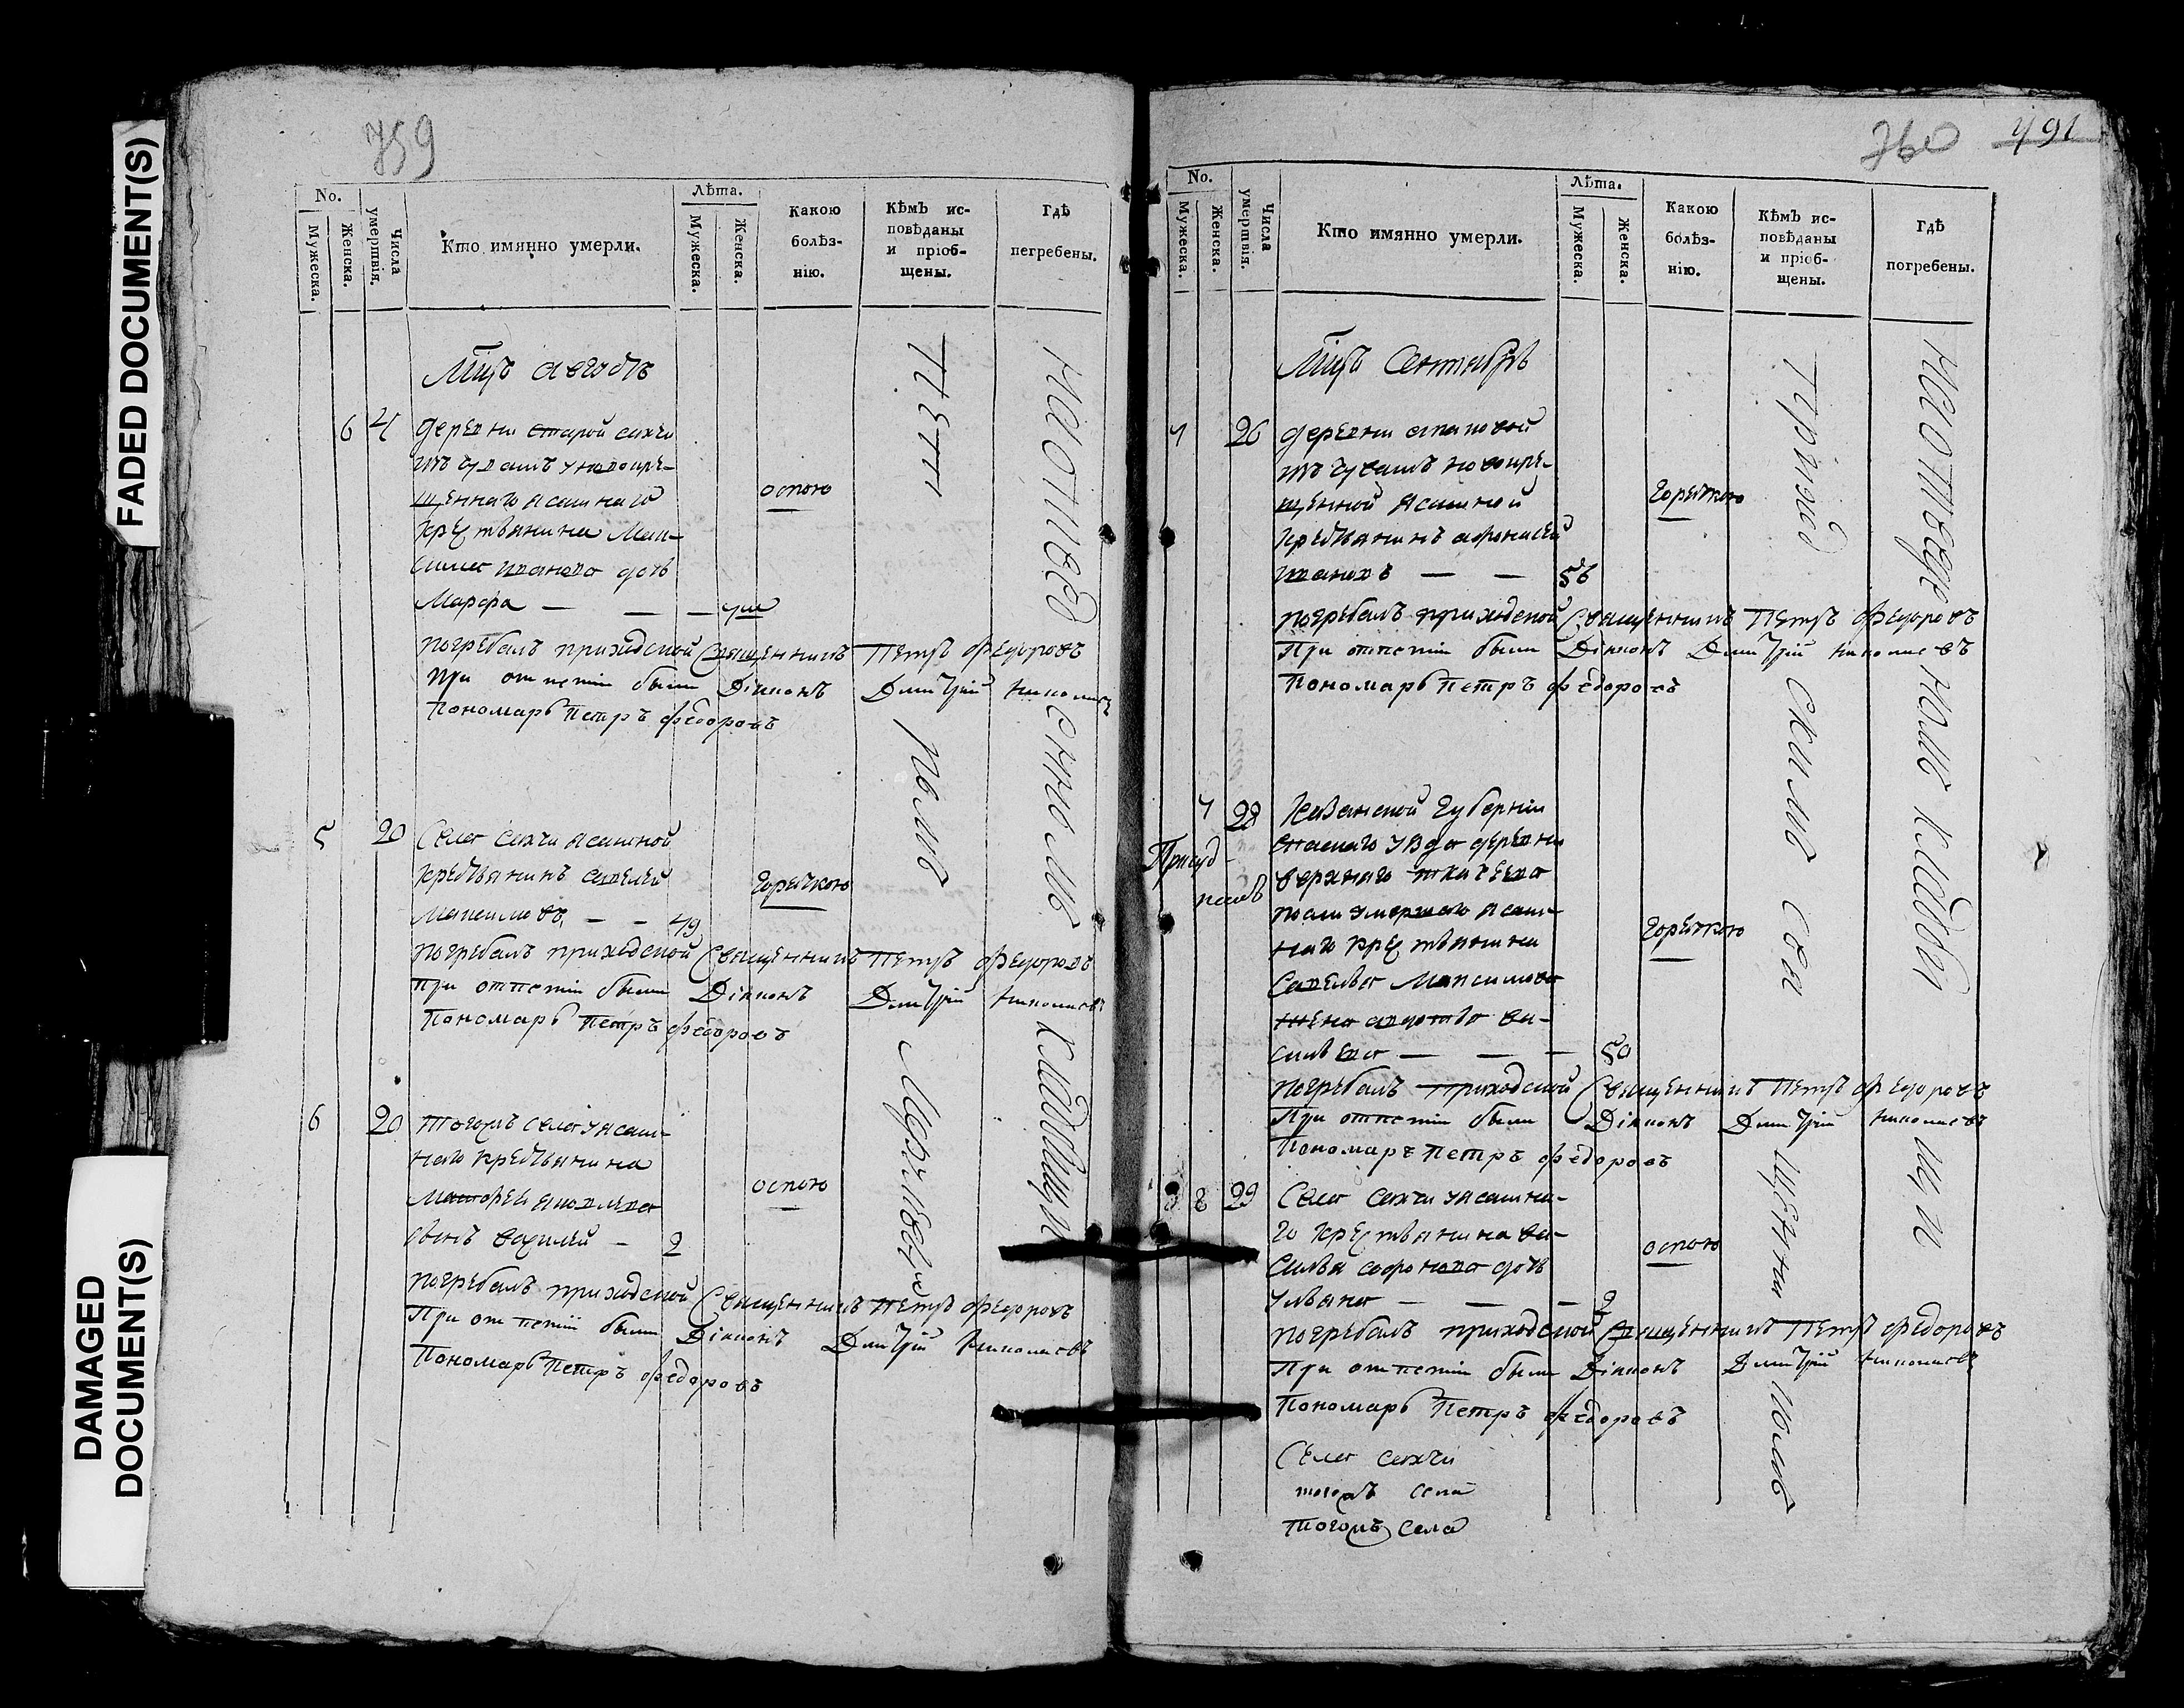 FADED DOCUMENT(S)
DAMAGED
DOCUMENT(S)
759
No.
Мужеска.
Женска.
Числа
умертвія.
Кто имянно умерли.
Лѣта.
Мужеска.
Женска.
Какою
болѣз-
нію.
Кѣмъ ис-
повѣданы
и пріоб-
щены.
Гдѣ
пегребены.
Мцъ августъ
6 4 деревни старой сахчи
изъ чувашъ у новокре-
щеннаго ясашнаго
крестьянина Мак-
сима иванова дочь
Марфа — — —
оспою
погребалъ приходской Священникъ Петръ Федоровъ
При отпетіи были Діаконъ Дмитрій николаевъ
Пономарь Петръ федоровъ
5 20 Села Сахчи ясашной
крестьянинъ савелей
Максимовъ — — 49
горячкою
погребалъ приходской Священникъ Петръ Федоровъ
При отпетіи были Діаконъ Дмитрій николаевъ
Пономарь Петръ федоровъ
6 20 Тогожъ села у ясаш-
наго крестьянина
сынъ василей — 2
оспою
погребалъ приходской Священникъ Петръ Федоровъ
При отпетіи были Діаконъ Дмитрій николаевъ
Пономарь Петръ федоровъ
760 491
No.
Мужеска.
Женска.
Числа
умертвія.
Кто имянно умерли.
Лѣта.
Мужеска.
Женска.
Какою
болѣз-
нію.
Кѣмъ ис-
повѣданы
и пріоб-
щены.
Гдѣ
погребены.
Мцъ Сентябрь
7 26 деревни
изъ чувашъ новокре-
щенной ясашной
крестьянинъ афонасей
ивановъ — —
горячкою
погребалъ приходской Священникъ Петръ Федоровъ
При отпетіи были Діаконъ Дмитрій николаевъ
Пономарь Петръ федоровъ
7 28 Казанской Губерніи
уезда деревни
верхняго
посли умершаго ясаш-
наго крестьянина
Савелья Максимова
жена авдотья ва-
сильева — — — 50
горячкою
погребалъ Приходской Священникъ Петръ Федоровъ
При отпетіи были Діаконъ Дмитрій николаевъ
Пономарь Петръ федоровъ
8 29 Села Сахчи у ясашна-
го крестьянина ва-
силья софронова дочь
ульяна — — — 2
оспою
погребалъ приходской Священникъ Петръ федоровъ
При отпетіи были Діаконъ Дмитрій николаевъ
Пономарь Петръ федоровъ
Села сахчи
тогожъ села
Тогожъ села